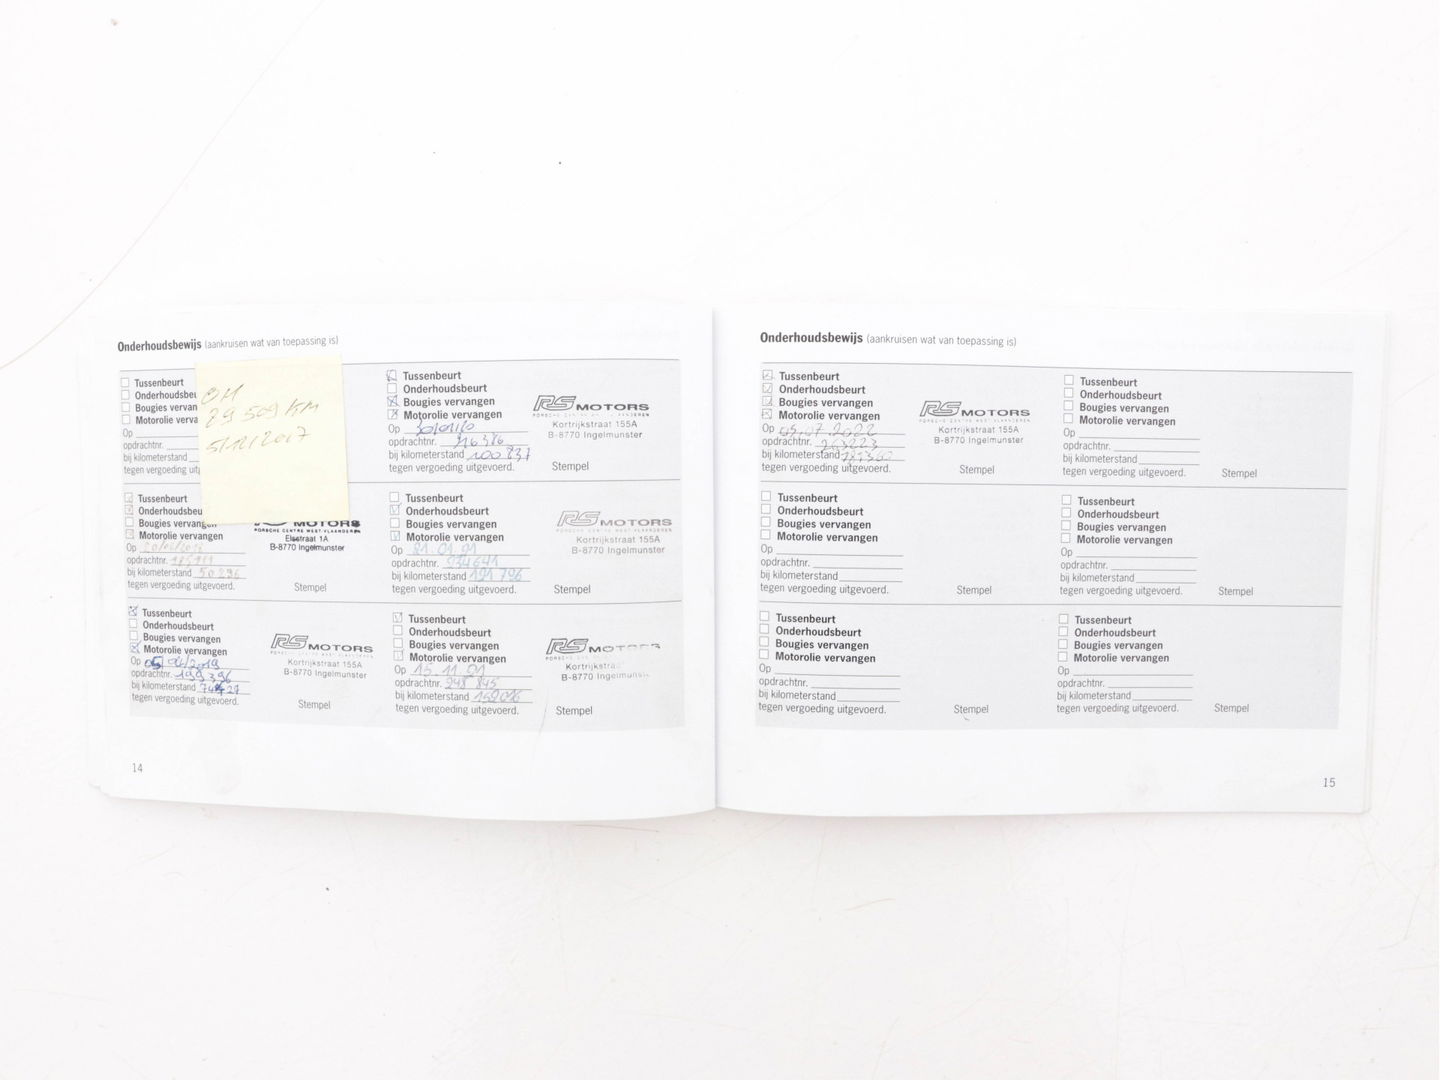 Onderhoudsbewijs (aankruisen wat van toepassing is)
Tussenbeurt
Onderhoudsbeu
Bougies vervan
Motorolie verva
Op
opdrachtnr.
bij kilometerstand
tegen vergoeding uitg
29 509 KM
5/12/2017
Tussenbeurt
Onderhoudsbeu
Bougies vervangen
Motorolie vervangen
Op
opdrachtnr.
bij kilometerstand 50 296
tegen vergoeding uitgevoerd.
MOTORS
PORSCHE CENTRE WEST VLAANDEREN
Elsstraat 1A
B-8770 Ingelmunster
Stempel
Tussenbeurt
Onderhoudsbeurt
Bougies vervangen
Motorolie vervangen
Op
opdrachtnr. 199396
bij kilometerstand
tegen vergoeding uitgevoerd.
RS MOTORS
Kortrijkstraat 155A
B-8770 Ingelmunster
Stempel
Tussenbeurt
Onderhoudsbeurt
Bougies vervangen
Motorolie vervangen
Op 30/01/20
opdrachtnr. 216386
bij kilometerstand 100 837
tegen vergoeding uitgevoerd.
RS MOTORS
PORSCHE CENTRE WEST VLAANDEREN
Kortrijkstraat 155A
B-8770 Ingelmunster
Stempel
Tussenbeurt
Onderhoudsbeurt
Bougies vervangen
Motorolie vervangen
Op
opdrachtnr. 234641
bij kilometerstand
tegen vergoeding uitgevoerd.
RS MOTORS
Kortrijkstraat 155A
B-8770 Ingelmunster
Stempel
Tussenbeurt
Onderhoudsbeurt
Bougies vervangen
Motorolie vervangen
Op
opdrachtnr. 248 845
bij kilometerstand
tegen vergoeding uitgevoerd.
RS MOTORS
Kortrijkstra
B-8770 Ingelmuns
Stempel
14
Onderhoudsbewijs (aankruisen wat van toepassing is)
Tussenbeurt
Onderhoudsbeurt
Bougies vervangen
Motorolie vervangen
Op 05.07.2022
opdrachtnr. 263223
bij kilometerstand
tegen vergoeding uitgevoerd.
RS MOTORS
Kortrijkstraat 155A
B-8770 Ingelmunster
Stempel
Tussenbeurt
Onderhoudsbeurt
Bougies vervangen
Motorolie vervangen
Op
opdrachtnr.
bij kilometerstand
tegen vergoeding uitgevoerd.
Stempel
Tussenbeurt
Onderhoudsbeurt
Bougies vervangen
Motorolie vervangen
Op
opdrachtnr.
bij kilometerstand
tegen vergoeding uitgevoerd.
Stempel
Tussenbeurt
Onderhoudsbeurt
Bougies vervangen
Motorolie vervangen
Op
opdrachtnr.
bij kilometerstand
tegen vergoeding uitgevoerd.
Stempel
Tussenbeurt
Onderhoudsbeurt
Bougies vervangen
Motorolie vervangen
Op
opdrachtnr.
bij kilometerstand
tegen vergoeding uitgevoerd.
Stempel
Tussenbeurt
Onderhoudsbeurt
Bougies vervangen
Motorolie vervangen
Op
opdrachtnr.
bij kilometerstand
tegen vergoeding uitgevoerd.
Stempel
15